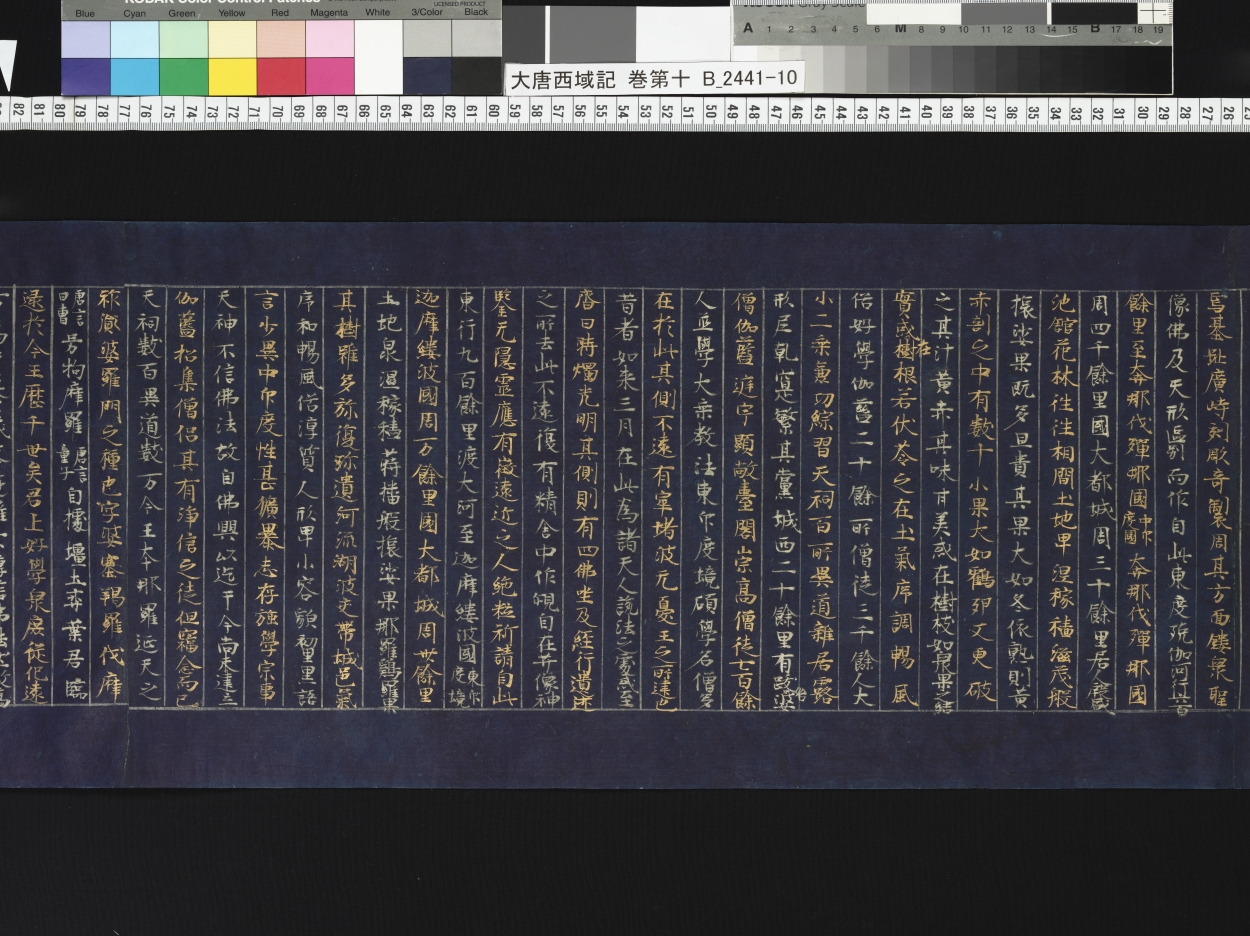 KODAK Color Control Patches
LICENSED PRODUCT
Blue Cyan Green Yellow Red Magenta White 3/Color Black
A 1 2 3 4 5 6 M 8 9 10 11 12 13 14 15 B 17 18 19
大唐西域記 巻第十 B_2441-10
82 81 80 79 78 77 76 75 74 73 72 71 70 69 68 67 66 65 64 63 62 61 60 59 58 57 56 55 54 53 52 51 50 49 48 47 46 45 44 43 42 41 40 39 38 37 36 35 34 33 32 31 30 29 28 27 26
焉基趾廣峙刻彫奇製周其方面鏤衆聖
像佛及天形區別而作自此東度殑伽河行六百
餘里至奔那伐彈那國中印度國奔那伐彈那國
周四千餘里國大都城周三十餘里居人殷盛
池館花林往往相間土地卑濕稼穡滋茂般
橠娑果既多且貴其果大如冬依熟則黃
赤剖之中有數十小果大如鶴卵又更破
之其汁黃赤其味甘美或在樹枝如衆果之結
實或在樹根若伏苓之在土氣序調暢風
俗好學伽藍二十餘所僧徒三千餘人大
小二乘兼功綜習天祠百所異道雜居露
形尼乾寔繁其黨城西二十餘里有跋始婆
僧伽藍庭宇顯敞臺閣崇高僧徒七百餘
人並學大乘教法東印度境碩學名僧多
在於此其側不遠有窣堵波无憂王之所建也
昔者如來三月在此為諸天人說法之處或至
齋日時燭光明其側則有四佛坐及經行遺迹
之所去此不遠復有精舍中作觀自在菩薩像神
鑒无隱靈應有徵遠近之人絕粒祈請自此
東行九百餘里渡大河至迦摩縷波國東印度境
迦摩縷波國周万餘里國大都城周卅餘里
土地泉濕稼穡蒔播般橠娑果那羅雞羅果
其樹雖多弥復珍遺河流湖波交帶城邑氣
序和暢風俗淳質人形卑小容貌黧黑語
言少異中印度性甚獷暴志存強學宗事
天神不信佛法故自佛興以迄于今尚未建立
伽藍招集僧侶其有淨信之徒但竊念而已
天祠數百異道數万今王本那羅延天之
祚胤婆羅門之種也字婆塞羯羅伐摩
唐言日冑号拘摩羅唐言童子自據壃土奕葉君臨
逮於今王歷千世矣君上好學衆庶從化遠